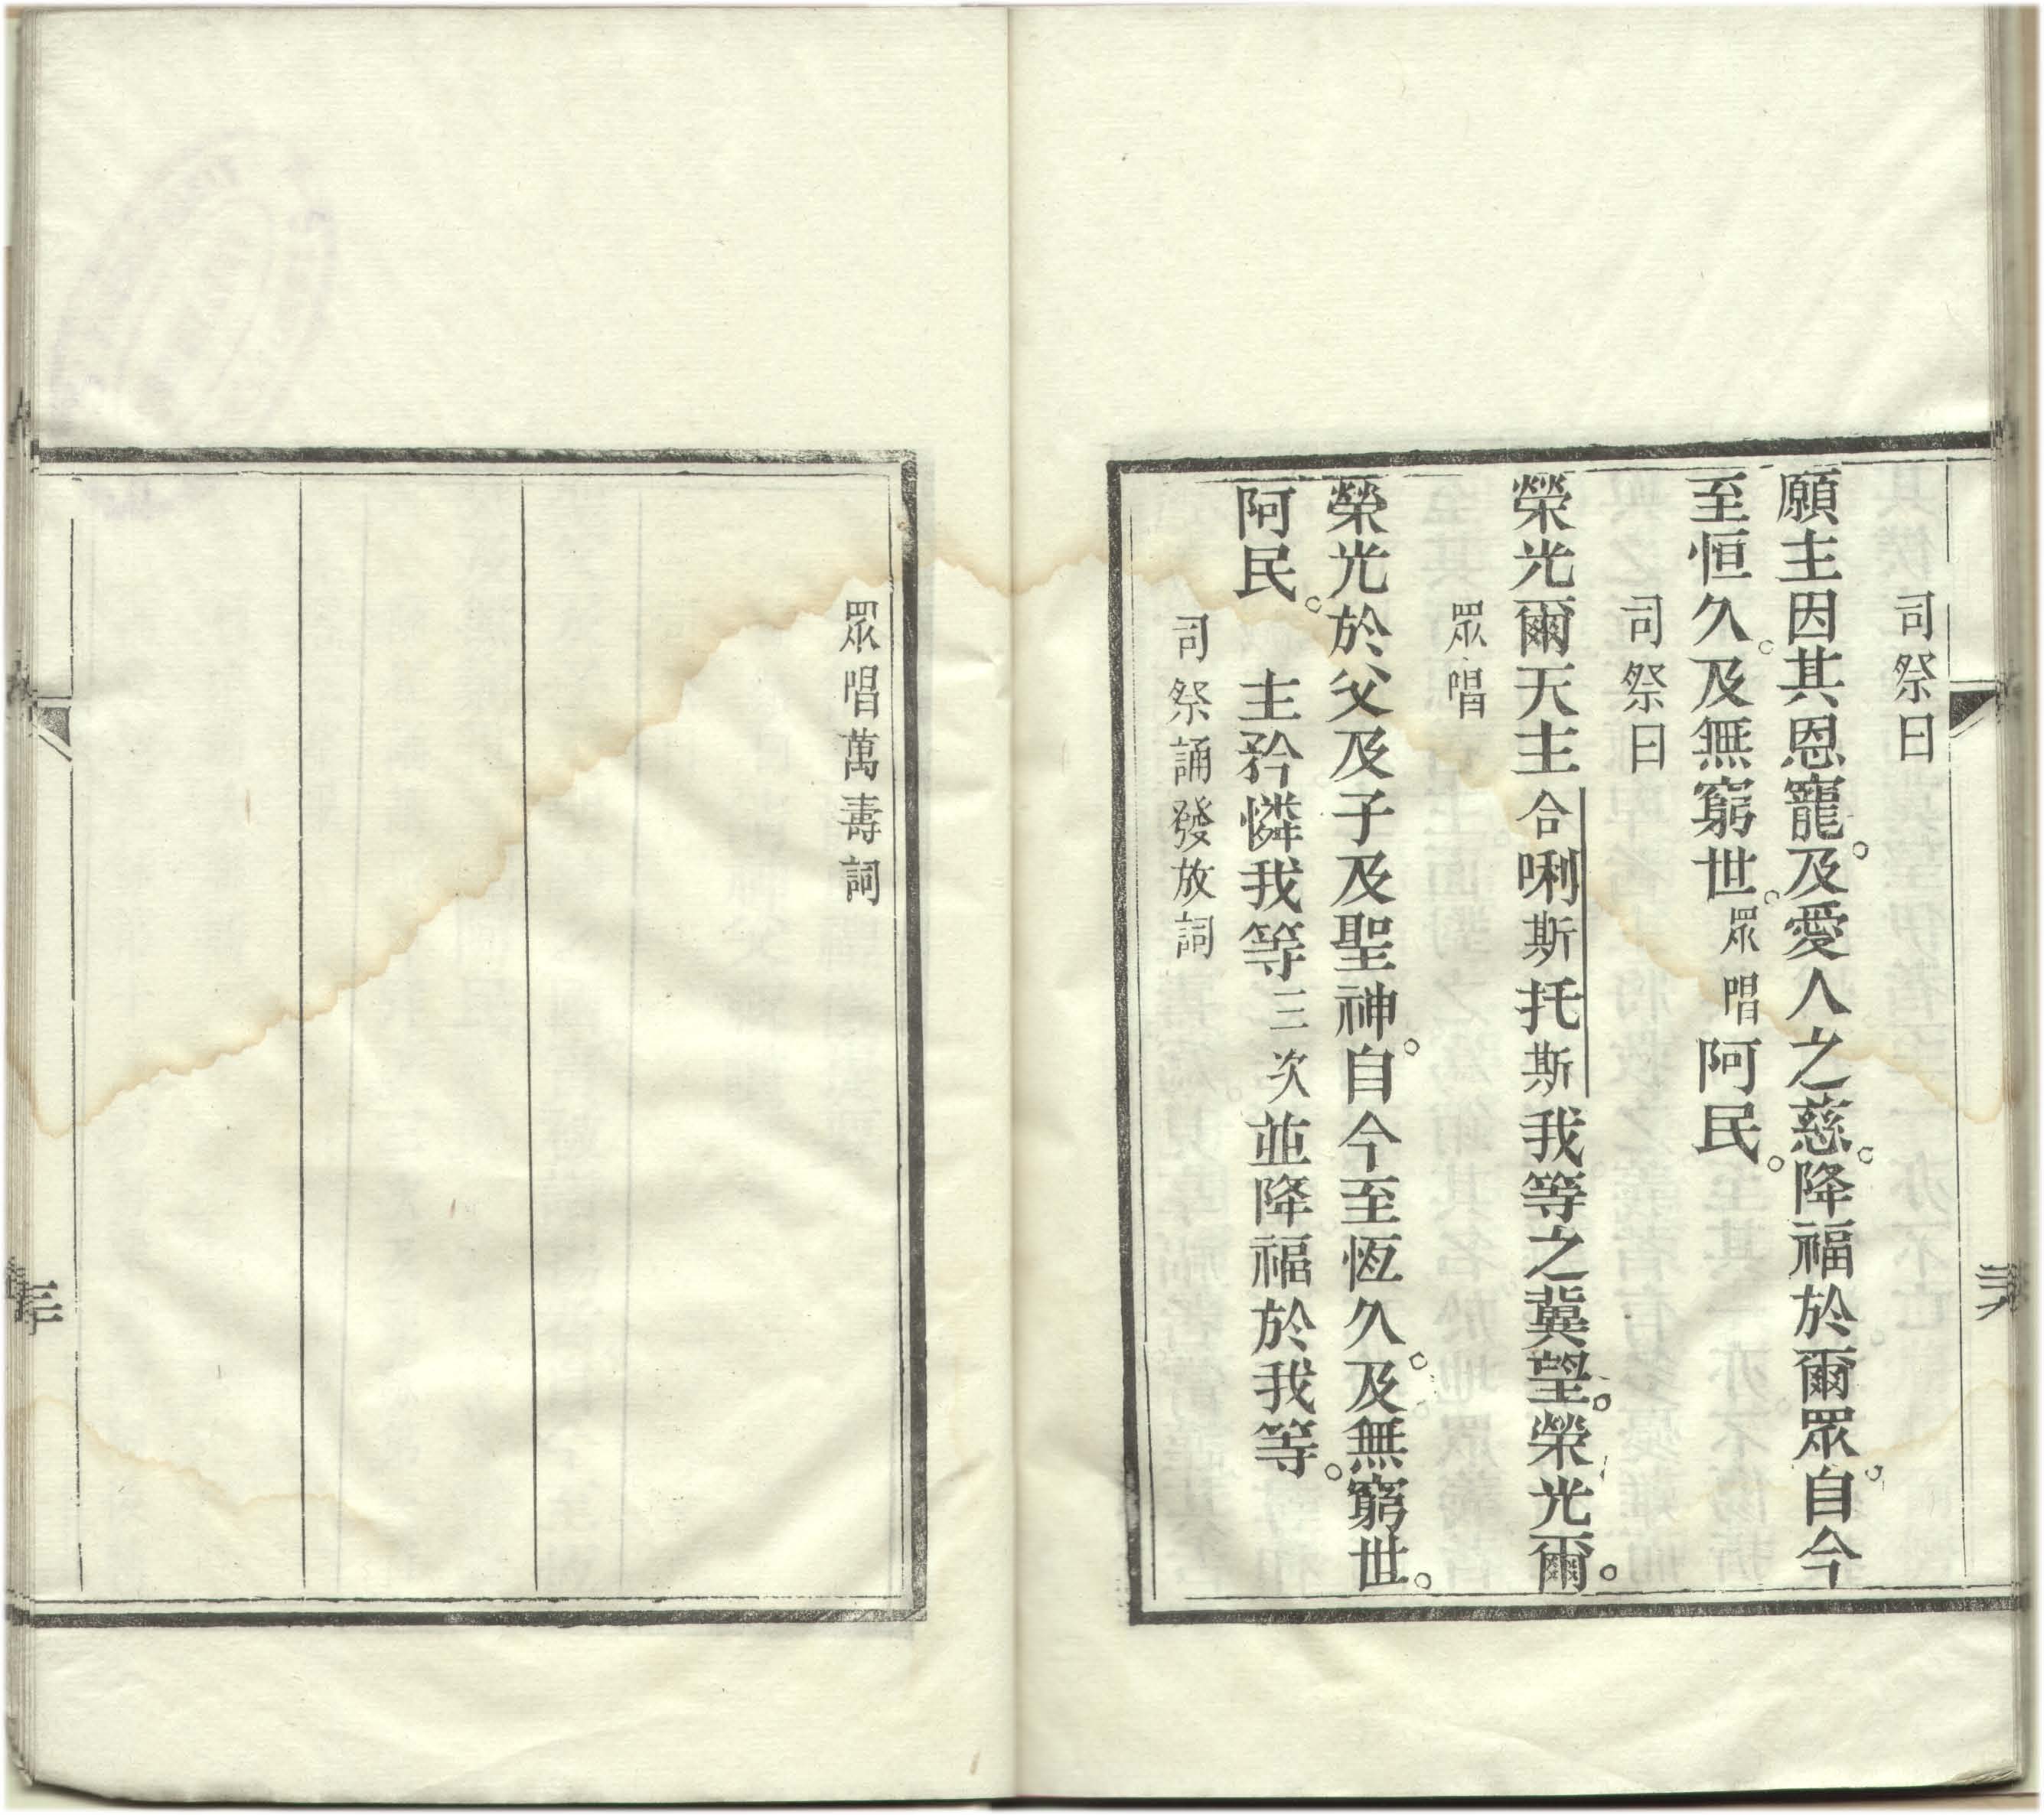 司祭曰
願主因其恩寵。及愛人之慈。降福於爾眾。自今
至恒久。及無窮世。眾唱阿民。
司祭曰
榮光爾天主合唎斯托斯我等之冀望。榮光爾。
眾唱
榮光於父及子及聖神。自今至恆久。及無窮世。
阿民。 主矜憐我等三次並降福於我等。
司祭誦發放詞
眾唱萬壽詞